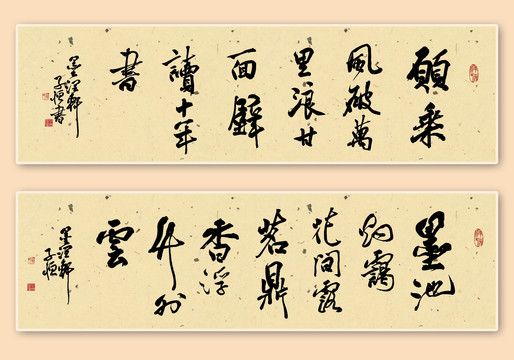 願乘
風破萬
里浪甘
面壁
讀十年
書
墨軒
子恒書
墨池
烟靄
花間露
茗鼎
香浮
竹外
雲
墨軒
子恒